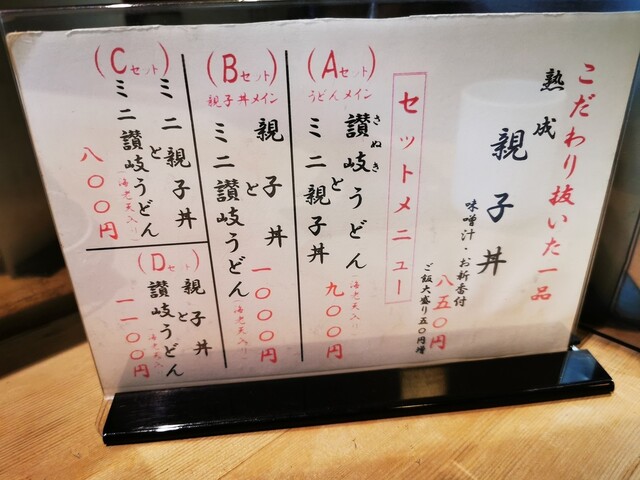 こだわり抜いた一品
熟成
親子丼
味噌汁・お新香付
八五〇円
ご飯大盛り五〇円増
セットメニュー
(Aセット)
うどんメイン
讃岐うどん
さぬき
と
ミニ親子丼
(海老天入り)
九〇〇円
(Bセット)
親子丼メイン
親子丼
と
ミニ讃岐うどん
(海老天入り)
一〇〇〇円
(Cセット)
ミニ親子丼
と
ミニ讃岐うどん
(海老天入り)
八〇〇円
(Dセット)
親子丼
と
讃岐うどん
(海老天入)
一一〇〇円